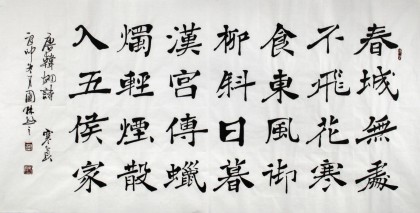 春城無處
不飛花寒
食東風御
柳斜日暮
漢宮傳蠟
燭輕煙散
入五侯家
唐韓翃詩 寒食